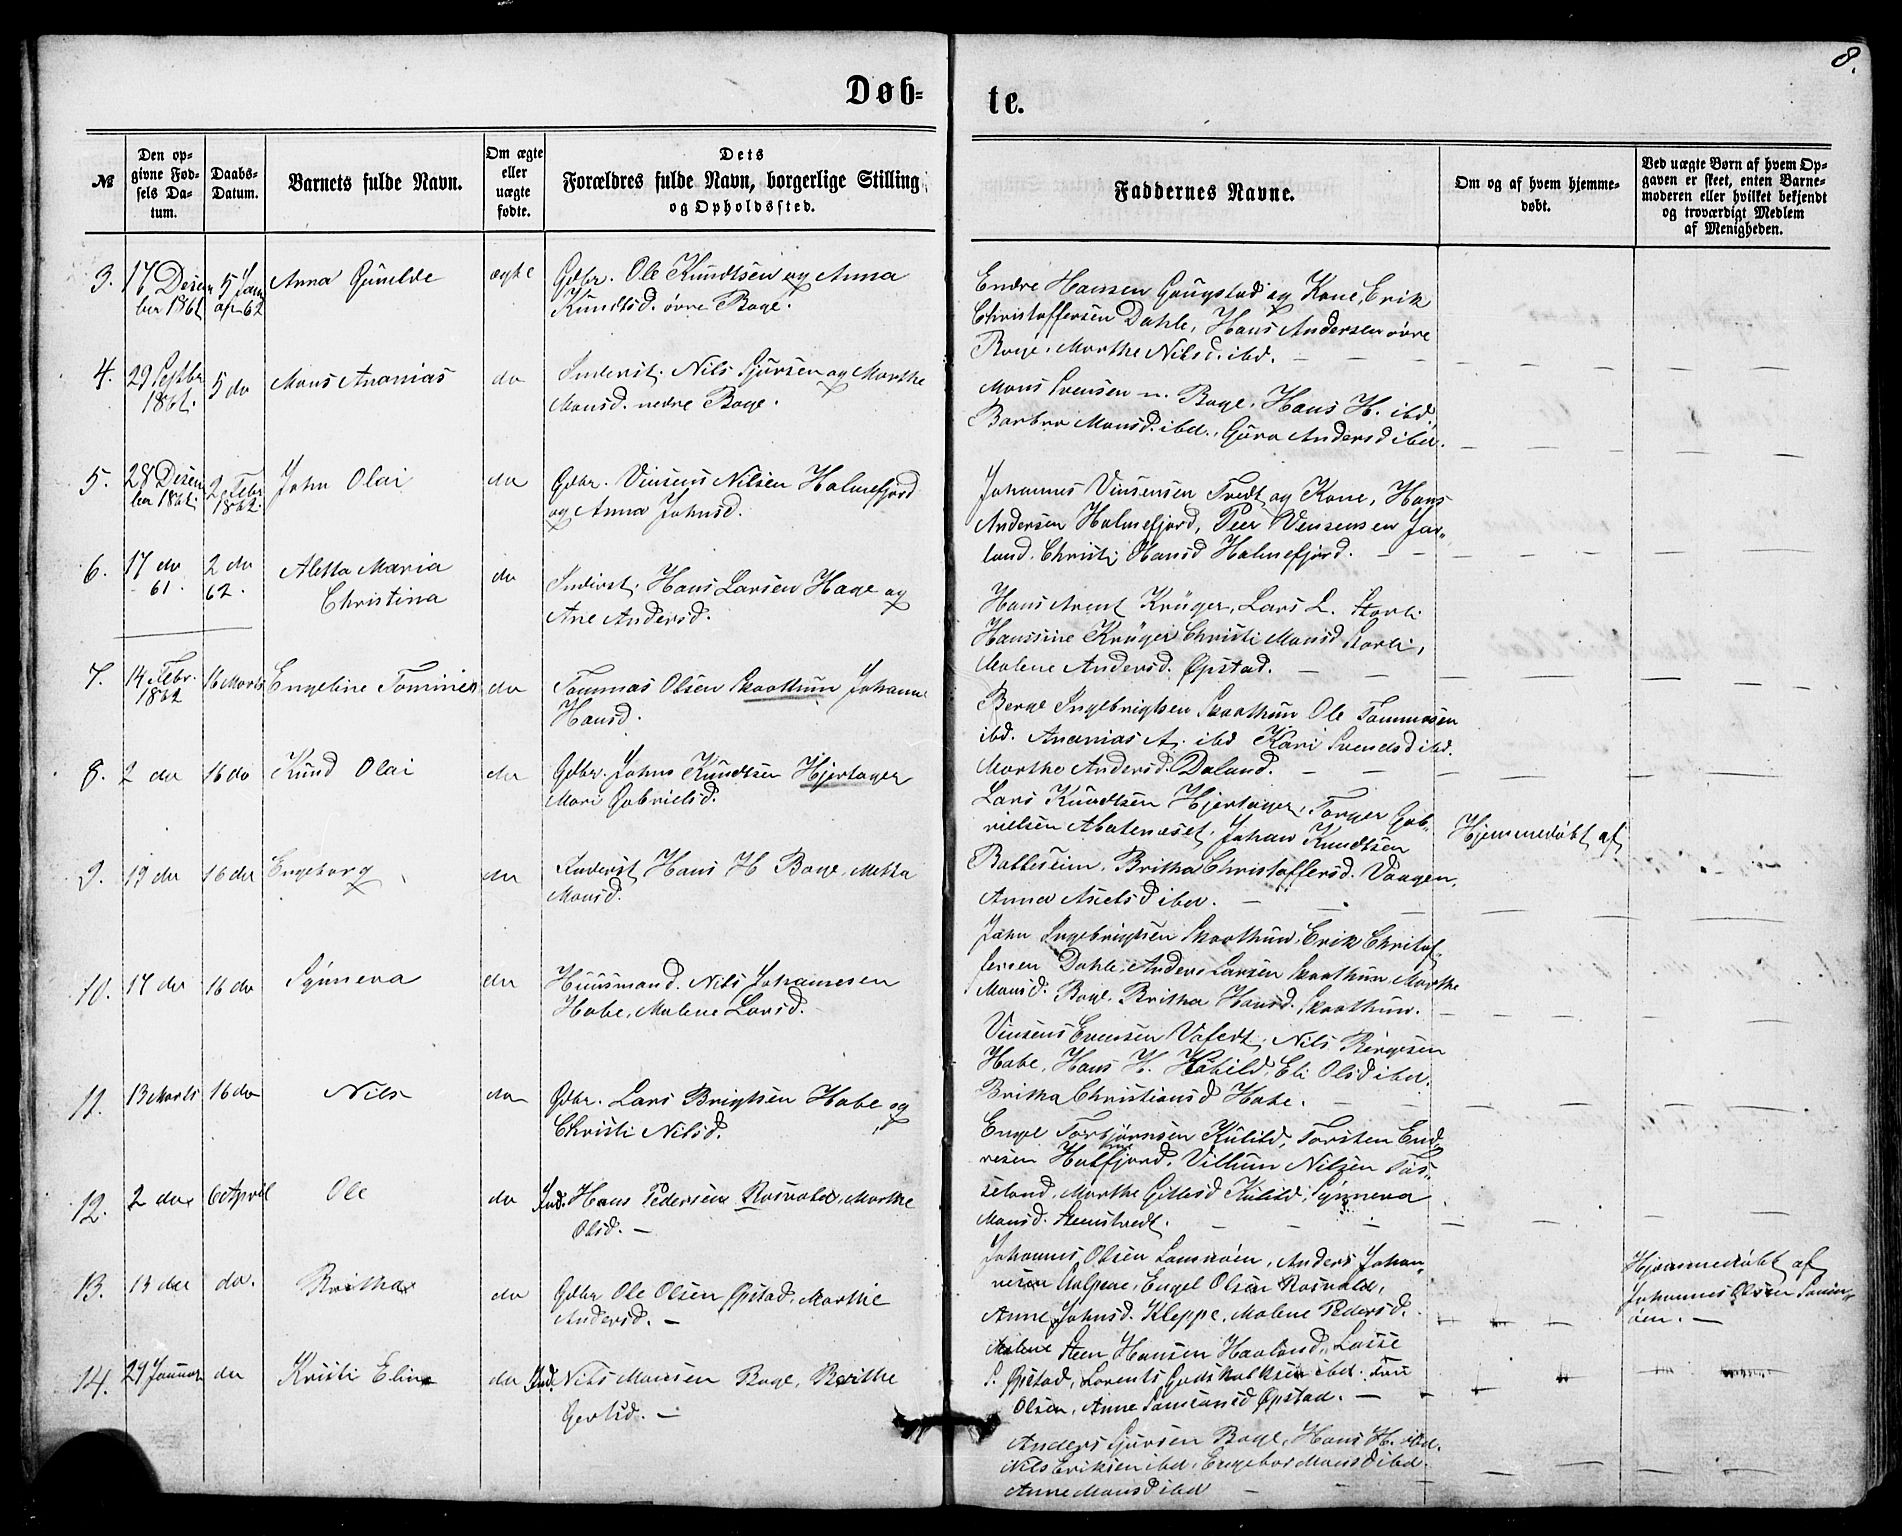 8.
Døb-
te.
№
Den op-
givne Fød-
sels Da-
tum.
Daabs-
Datum.
Barnets fulde Navn.
Om ægte
eller
uægte
fødte.
Dets
Forældres fulde Navn, borgerlige Stilling
og Opholdssted.
Faddernes Navne.
Om og af hvem hjemme-
døbt.
Ved uægte Børn af hvem Op-
gaven er skeet, enten Barne-
moderen eller hvilket bekjendt
og troværdigt Medlem
af Menigheden.
3.
17 Desem
ber 1861.
5 Janu
62
Anna Gunilde
ægte
Gdbr. Ole Knudtsen og Anna
Knudtsd. øvre Bage.
Endre Hansen Gaugstad og Kone, Erik
Christoffersen Dahle, Hans Andersen øvre
Bage, Marthe Nilsd. ibd.
4.
29 Septbr
1861.
5 do
Mons Ananias
do
Inderst. Nils Sjursen og Marthe
Monsd. nedre Bage.
Mons Svensen n. Bage, Hans H. ibd.
Barbro Monsd. ibd., Guro Andersd ibd.
5.
28 Desem
ber 1861.
2 Febr
1862.
John Olai
do
Gdbr. Vinsens Nilsen Holmefjord
og Anna Johnsd.
Johannes Vinsensen Tvedt og Kone, Hans
Andersen Holmefjord, Peer Vensensen Jar-
land. Christi Hansd Holmefjord.
6.
17 do
61.
2 do
62.
Aletta Maria
Christina
do
Inderst. Hans Larsen Hage og
Ane Andersd.
Hans Arent Krüger, Lars L. Storli
Hanssine Krüger Christi Monsd Storli,
Malene Andersd. Øpstad.
7.
14 Febr.
1862
16 Marts
Engeline Tomines
do
Tommas Olsen Skaathun Johanne
Hansd.
Berge Ingebrigtsen Skaathun Ole Tommasen
ibd. Ananias A. ibd Kari Svendsd ibd.
Marthe Andersd. Daland.
8.
2 do
16 do
Knud Olai
do
Gdbr. Johns Knudtsen Hjertager
Mari Gabrielsd.
Lars Knudtsen Hjertager, Torger Gab-
rielsen Johan Knudtsen
Britha Christoffersd. Vaagen,
Anna Axelsd ibd.
Hjemmedøbt af
9.
19 do
16 do
Engeborg
do
Inderst Hans H Bage, Metta
Monsd.
John Ingebrigtsen Skaathun, Erik Christof
fersen Dahle, Anders Larsen Skaathun Marthe
Monsd. Bage. Britha Hansd. Skaathun.
10.
17 do
16 do
Synneva
do
Huusmand. Nils Johannesen
Habe, Malene Larsd.
Vinsens Evensen Nils Børgesen
Habe, Hans H. Eli Olsd ibd.
Britha Christiansd Habe.
11.
13 Marts
16 do
Nils
do
Gdbr. Lars Brigtsen Habe og
Christi Nilsd.
Engel Torbjørnsen Kulild, Torsten End
resen Villum Nilsen Tøs-
seland, Marthe Gitlesd Kulild, Synneva
Monsd.
12.
2 do
6 April
Ole
do
Ind. Hans Pedersen Rosvold, Marthe
Olsd. —
Johannes Olsen Samnøen, Anders Johan-
nesen Engel Olsen Rosvold,
Anne Johnsd. Kleppe, Malene Pedersd.
13.
do
do.
Britha
do
Gdbr Ole Olsen Øpstad, Marthe
Andersd. —
Steen Hansen Havland, Lasse
S. Øpstad, Lorents Godskalksen ibd.
Olsen, Anne Samsonsd Øpstad. —
Hjemmedøbt af
Johannes Olsen Samn-
øen. —
14.
Januar
do
Kristi Eline
do
Ind. Nils Monsen Bage, Brithe
Gertsd. —
Anders Sjursen Bage, Hans H. ibd.
Nils Eriksen ibd, Engebor Monsd ibd.
Anne Monsd ibd